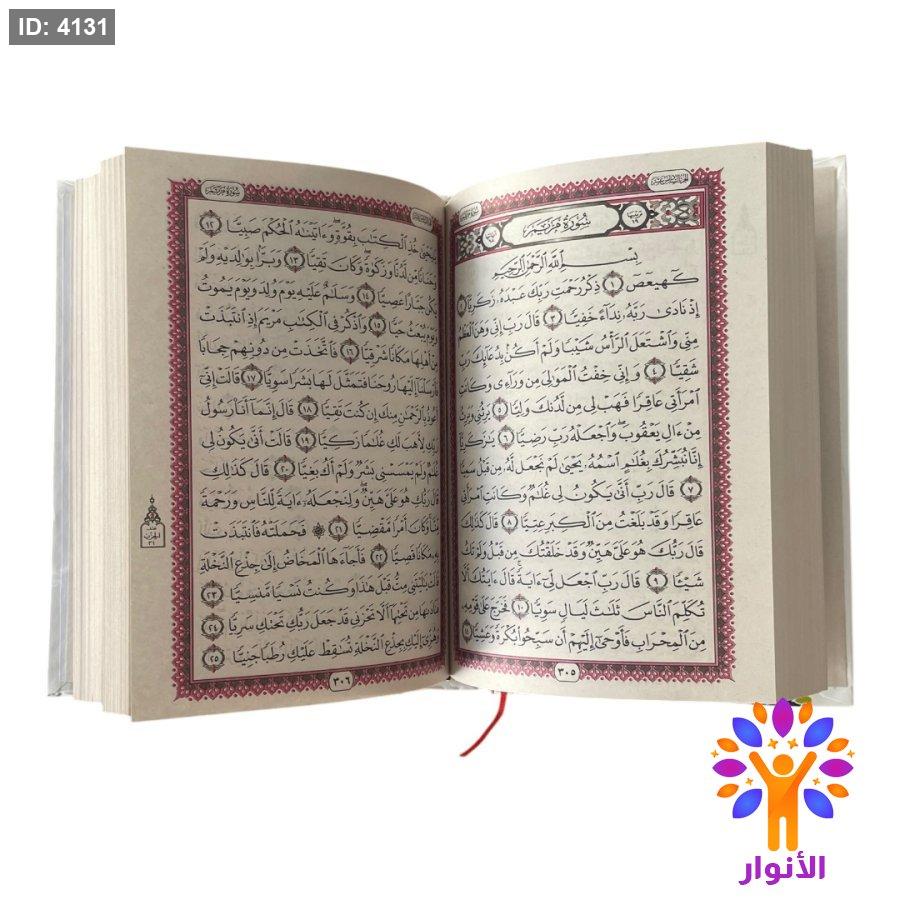 ID: 4131
الجزء السادس عشر
سُورَةُ مَرْيَم
سُورَةُ مَرْيَمَ
بِسْمِ ٱللَّهِ ٱلرَّحْمَٰنِ ٱلرَّحِيمِ
كٓهيعٓصٓ ١ ذِكْرُ رَحْمَتِ رَبِّكَ عَبْدَهُۥ زَكَرِيَّآ ٢
إِذْ نَادَىٰ رَبَّهُۥ نِدَآءً خَفِيًّا ٣ قَالَ رَبِّ إِنِّي وَهَنَ ٱلْعَظْمُ
مِنِّي وَٱشْتَعَلَ ٱلرَّأْسُ شَيْبًا وَلَمْ أَكُنۢ بِدُعَآئِكَ رَبِّ
شَقِيًّا ٤ وَإِنِّي خِفْتُ ٱلْمَوَٰلِيَ مِن وَرَآءِي وَكَانَتِ
ٱمْرَأَتِي عَاقِرًا فَهَبْ لِي مِن لَّدُنكَ وَلِيًّا ٥ يَرِثُنِي وَيَرِثُ
مِنْ ءَالِ يَعْقُوبَ وَٱجْعَلْهُ رَبِّ رَضِيًّا ٦ يَٰزَكَرِيَّآ
إِنَّا نُبَشِّرُكَ بِغُلَٰمٍ ٱسْمُهُۥ يَحْيَىٰ لَمْ نَجْعَل لَّهُۥ مِن قَبْلُ سَمِيًّا
٧ قَالَ رَبِّ أَنَّىٰ يَكُونُ لِي غُلَٰمٌ وَكَانَتِ ٱمْرَأَتِي
عَاقِرًا وَقَدْ بَلَغْتُ مِنَ ٱلْكِبَرِ عِتِيًّا ٨ قَالَ كَذَٰلِكَ
قَالَ رَبُّكَ هُوَ عَلَيَّ هَيِّنٌ وَقَدْ خَلَقْتُكَ مِن قَبْلُ وَلَمْ تَكُ
شَيْـًٔا ٩ قَالَ رَبِّ ٱجْعَل لِّيٓ ءَايَةً قَالَ ءَايَتُكَ أَلَّا
تُكَلِّمَ ٱلنَّاسَ ثَلَٰثَ لَيَالٍ سَوِيًّا ١٠ فَخَرَجَ عَلَىٰ قَوْمِهِۦ
مِنَ ٱلْمِحْرَابِ فَأَوْحَىٰٓ إِلَيْهِمْ أَن سَبِّحُوا۟ بُكْرَةً وَعَشِيًّا ١١
٣٠٥
سُورَةُ مَرْيَمَ
يَٰيَحْيَىٰ خُذِ ٱلْكِتَٰبَ بِقُوَّةٍ وَءَاتَيْنَٰهُ ٱلْحُكْمَ صَبِيًّا ١٢
وَحَنَانًا مِّن لَّدُنَّا وَزَكَوٰةً وَكَانَ تَقِيًّا ١٣ وَبَرًّۢا بِوَٰلِدَيْهِ وَلَمْ
يَكُن جَبَّارًا عَصِيًّا ١٤ وَسَلَٰمٌ عَلَيْهِ يَوْمَ وُلِدَ وَيَوْمَ يَمُوتُ
وَيَوْمَ يُبْعَثُ حَيًّا ١٥ وَٱذْكُرْ فِي ٱلْكِتَٰبِ مَرْيَمَ إِذِ ٱنتَبَذَتْ
مِنْ أَهْلِهَا مَكَانًا شَرْقِيًّا ١٦ فَٱتَّخَذَتْ مِن دُونِهِمْ حِجَابًا
فَأَرْسَلْنَآ إِلَيْهَا رُوحَنَا فَتَمَثَّلَ لَهَا بَشَرًا سَوِيًّا ١٧ قَالَتْ إِنِّيٓ
أَعُوذُ بِٱلرَّحْمَٰنِ مِنكَ إِن كُنتَ تَقِيًّا ١٨ قَالَ إِنَّمَآ أَنَا۠ رَسُولُ
رَبِّكِ لِأَهَبَ لَكِ غُلَٰمًا زَكِيًّا ١٩ قَالَتْ أَنَّىٰ يَكُونُ لِي
غُلَٰمٌ وَلَمْ يَمْسَسْنِي بَشَرٌ وَلَمْ أَكُ بَغِيًّا ٢٠ قَالَ كَذَٰلِكِ
قَالَ رَبُّكِ هُوَ عَلَيَّ هَيِّنٌ وَلِنَجْعَلَهُۥٓ ءَايَةً لِّلنَّاسِ وَرَحْمَةً
مِّنَّا وَكَانَ أَمْرًا مَّقْضِيًّا ٢١ ۞ فَحَمَلَتْهُ فَٱنتَبَذَتْ
بِهِۦ مَكَانًا قَصِيًّا ٢٢ فَأَجَآءَهَا ٱلْمَخَاضُ إِلَىٰ جِذْعِ ٱلنَّخْلَةِ
قَالَتْ يَٰلَيْتَنِي مِتُّ قَبْلَ هَٰذَا وَكُنتُ نَسْيًا مَّنسِيًّا ٢٣
فَنَادَىٰهَا مِن تَحْتِهَآ أَلَّا تَحْزَنِي قَدْ جَعَلَ رَبُّكِ تَحْتَكِ سَرِيًّا ٢٤
وَهُزِّيٓ إِلَيْكِ بِجِذْعِ ٱلنَّخْلَةِ تُسَٰقِطْ عَلَيْكِ رُطَبًا جَنِيًّا ٢٥
الحزب
٣١
٣٠٦
الأنوار